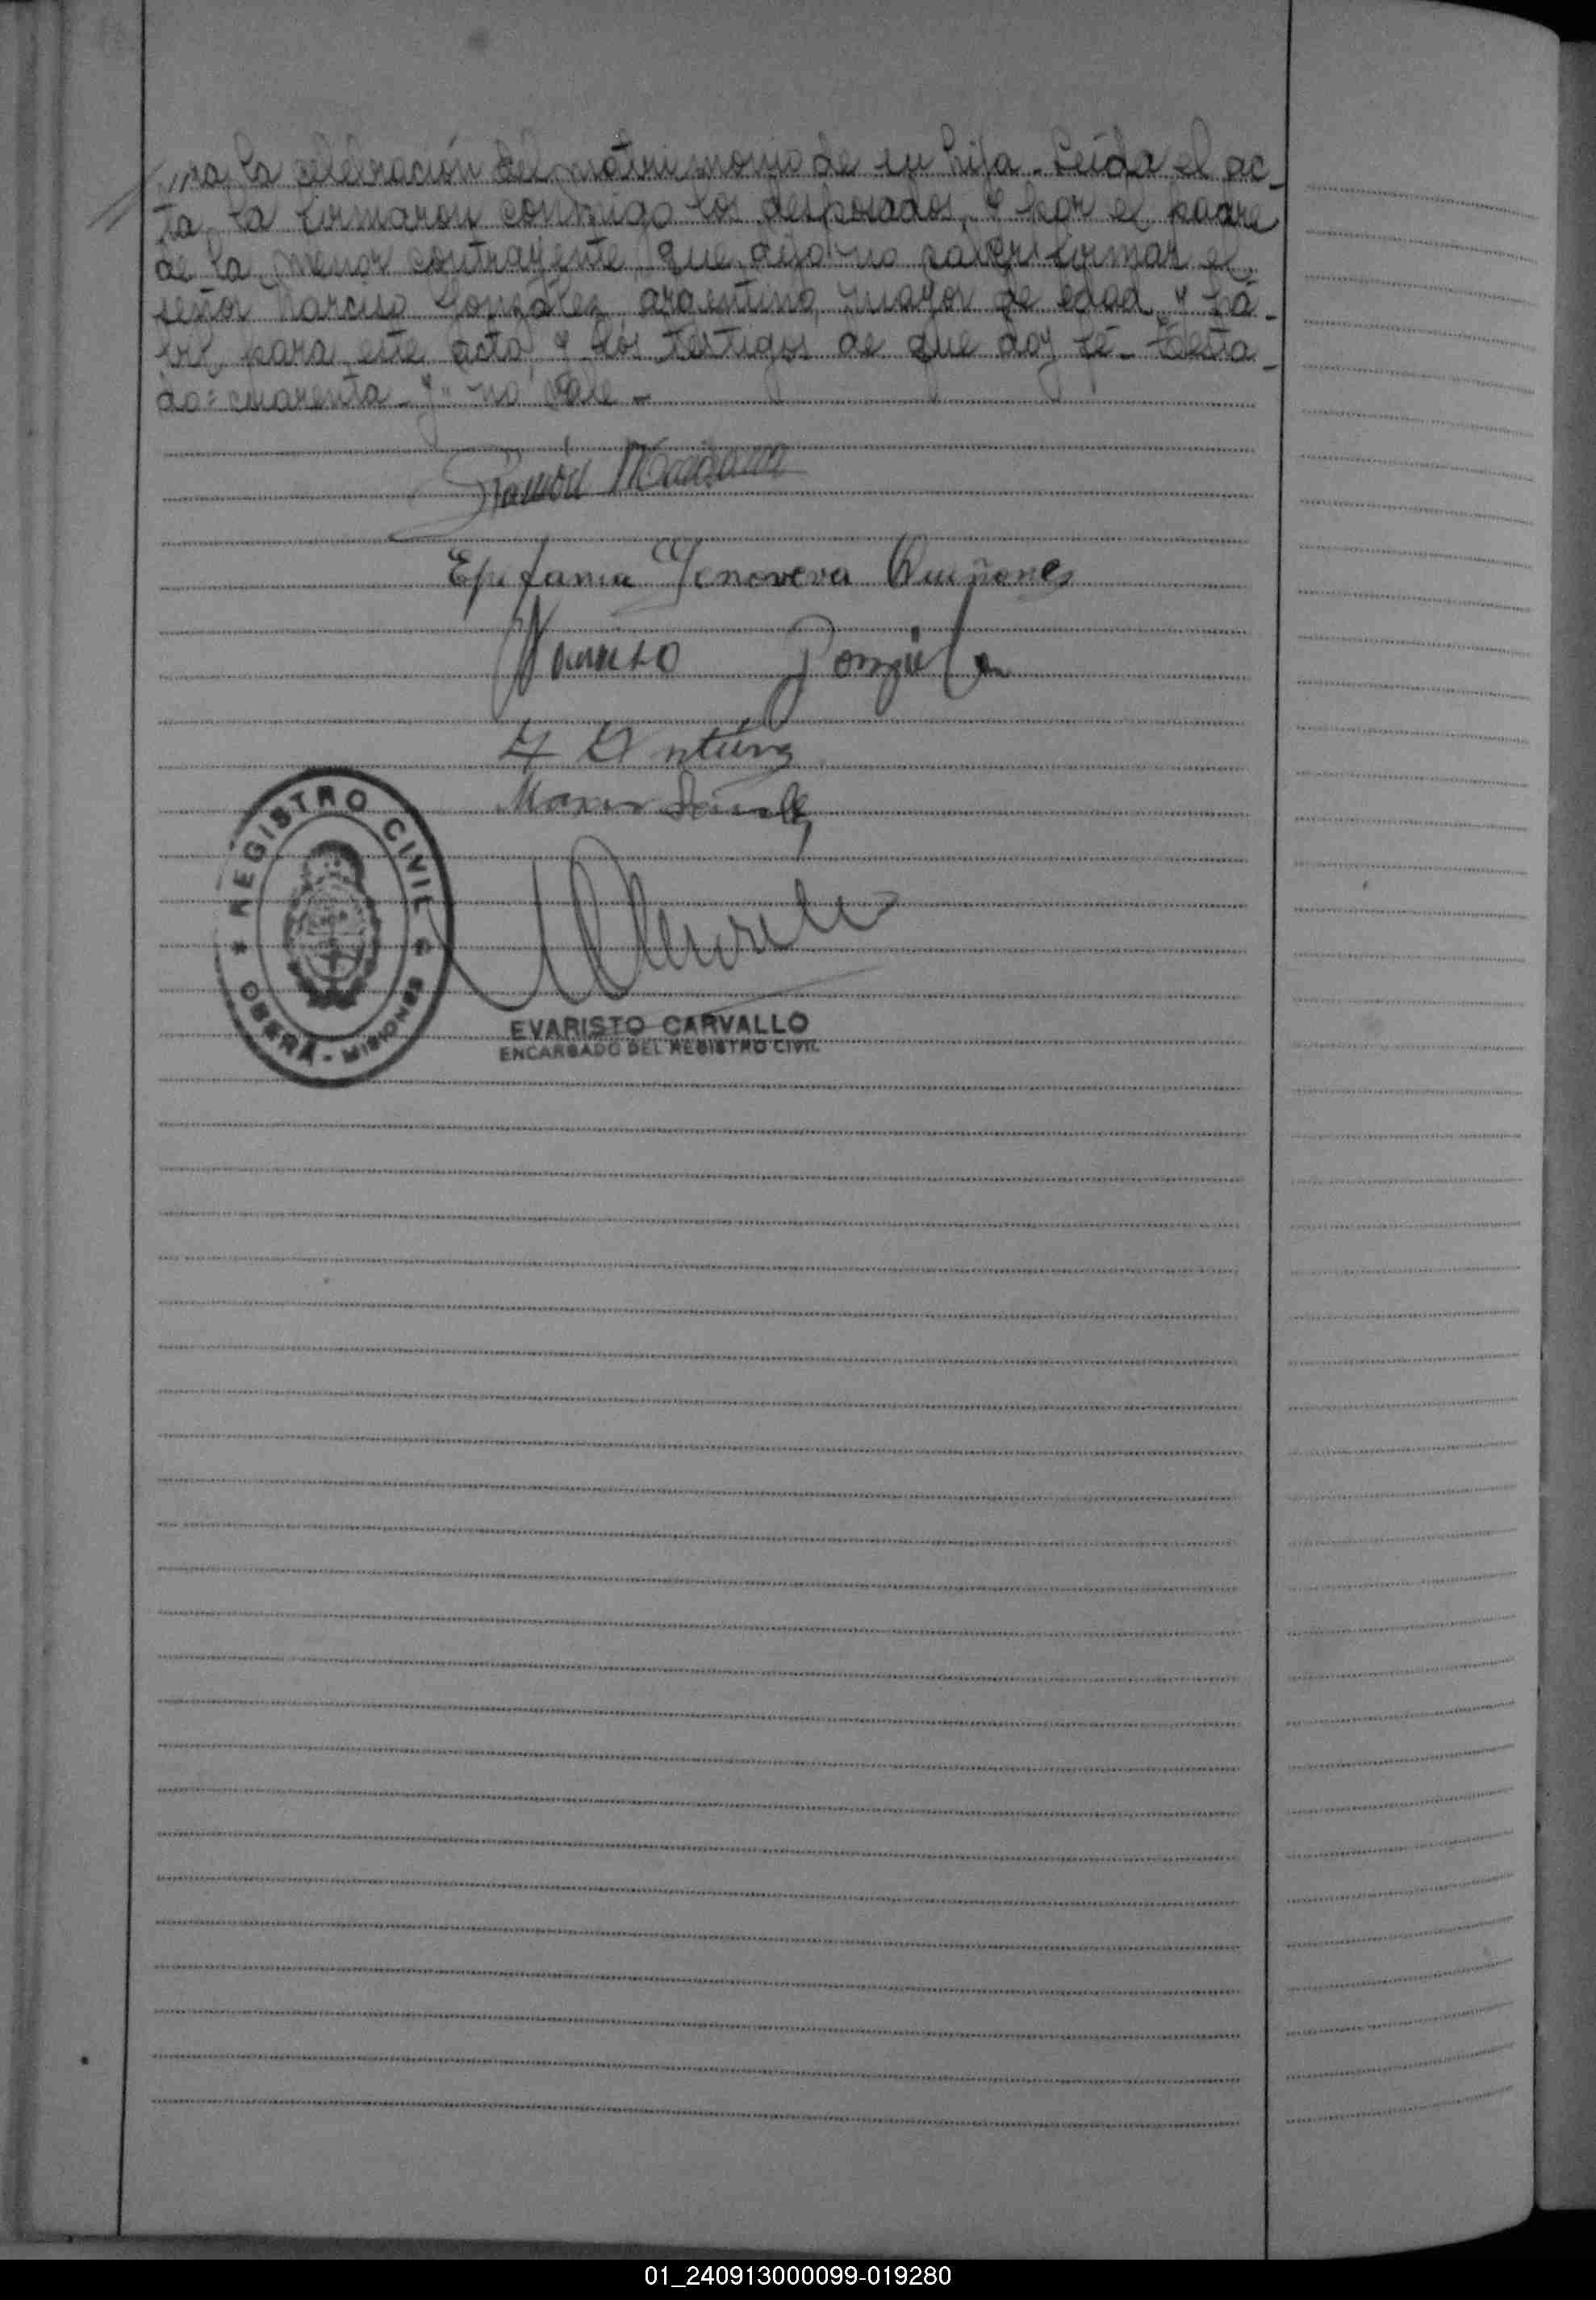 ra la celebración del matrimonio de su hija. Leída el ac-
ta, la firmaron conmigo los desposados, y por el padre
de la menor contrayente que dijo no saber firmar el
señor Narciso González, argentino, mayor de edad y há-
bil para este acto, y los testigos de que doy fé. Testa-
do: cuarenta y no vale -
Ramón
Epifania Genoveva Quiñones
Narciso Gonzalez
Mario
REGISTRO CIVIL
OBERÁ - MISIONES
EVARISTO CARVALLO
ENCARGADO DEL REGISTRO CIVIL
01_240913000099-019280